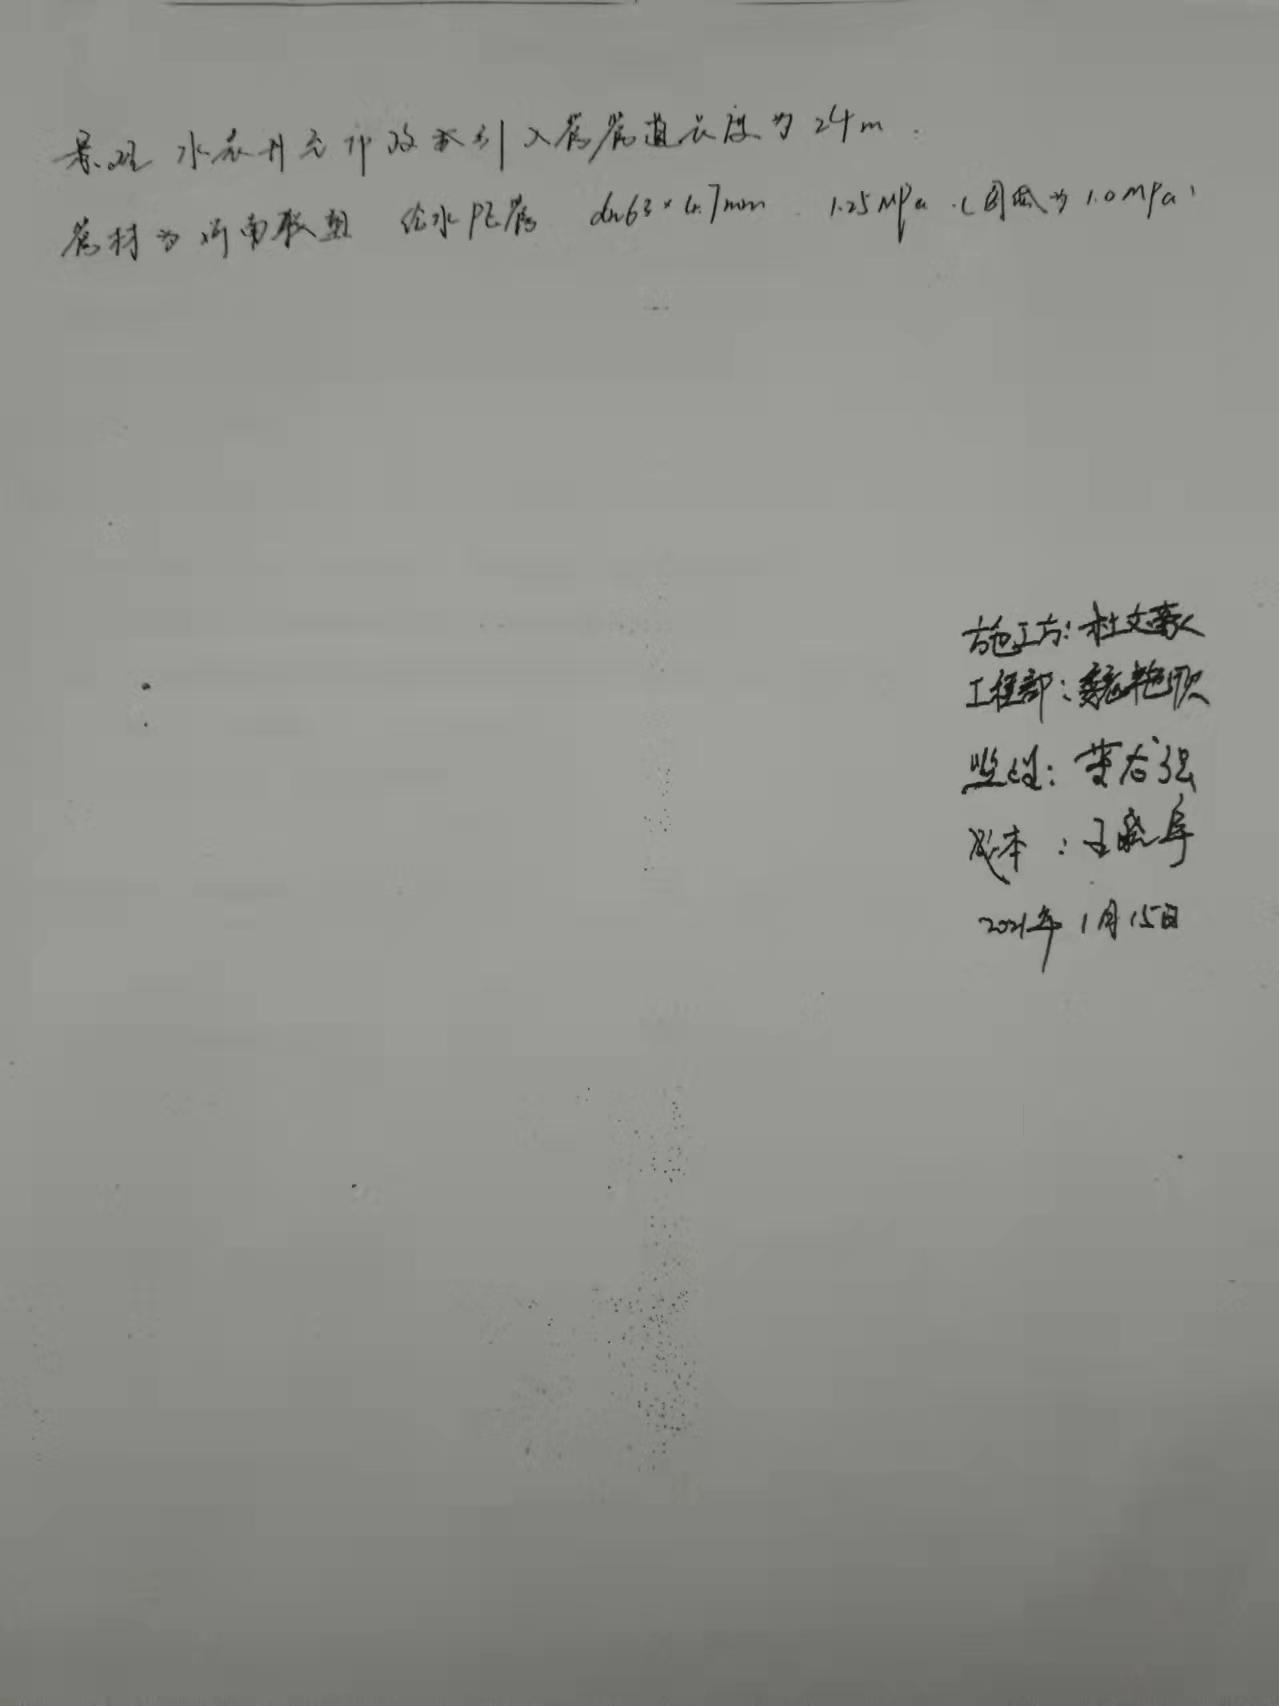 景观 水表井 引入管管道长度为 24m.
管材为河南联塑 给水PE管 dn63×4.7mm. 1.25MPa.(图纸为1.0MPa)
施工方:杜文豪
工程部:魏艳欣
监理:董春强
成本:王晓
2021年1月15日